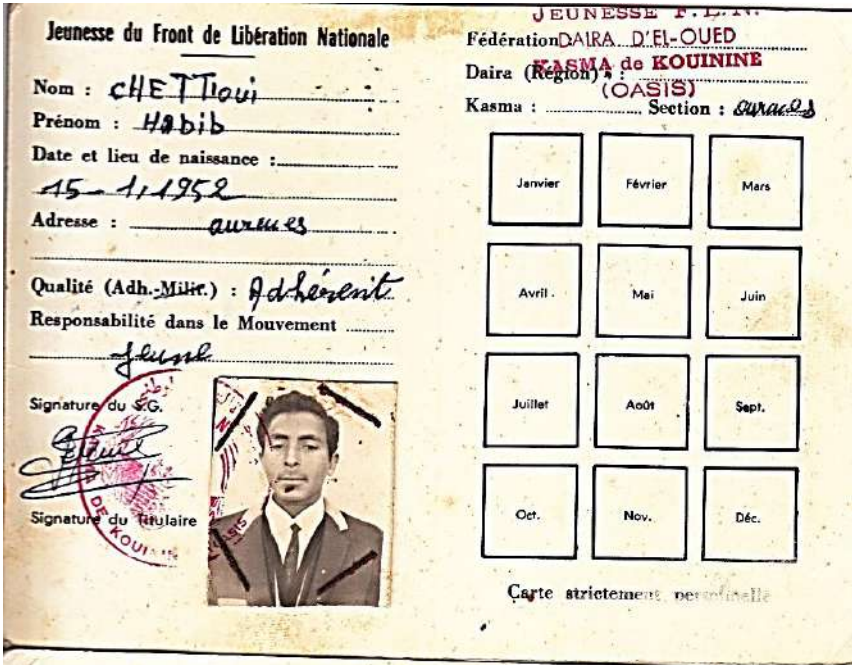 Jeunesse du Front de Libération Nationale
Nom : CHETTIoui
Prénom : Habib
Date et lieu de naissance :
15-1,1952
Adresse :
Qualité (Adh.-Milit.) : Adhérent
Responsabilité dans le Mouvement
Jeune
Signature du S.G.
Signature du Titulaire
KASMA DE KOUI
OASIS
JEUNESSE F.L.N.
Fédération DAIRA D'EL-OUED
Daira (Région) : KASMA de KOUININE
(OASIS)
Kasma : Section :
Janvier Février Mars
Avril Mai Juin
Juillet Août Sept.
Oct. Nov. Déc.
Carte strictement personnelle